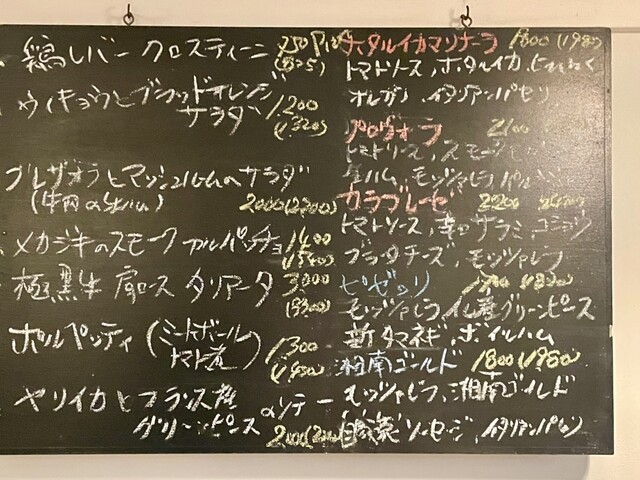 鶏レバークロスティーニ 750
(825)
ウイキョウとブラッドオレンジ
サラダ 1200
(1320)
ブレザオラとマッシュルームのサラダ
(牛肉の生ハム) 2000(2200)
メカジキのスモークカルパッチョ 1400
(1540)
極黒牛肩ロースタリアータ 3000
(3300)
ポルペッティ(ミートボール
トマト煮) 1300
(1430)
ヤリイカとフランス産
グリーンピース
のソテー
2000
ホタルイカマリナーラ 1800(1980)
トマトソース、ホタルイカ、にんにく
オレガノ、イタリアンパセリ
プロヴォラ 2100
トマトソース、スモーク
生ハム、モッツァレラ
カラブレーゼ 2200
トマトソース、辛口サラミ、コショウ
ブラタチーズ、モッツァレラ
ピゼッリ
モッツァレラ、仏産グリーンピース
新タマネギ、ボイルハム
湘南ゴールド 1800(1980)
モッツァレラ、湘南ゴールド
ソーセージ、イタリアンパセリ